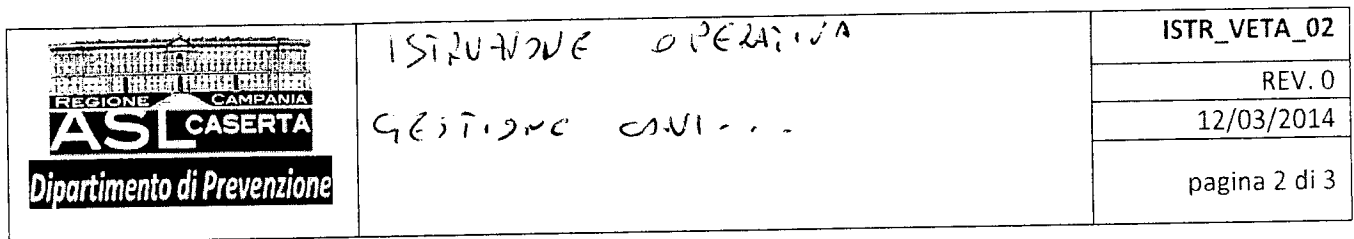 REGIONE CAMPANIA
ASL CASERTA
Dipartimento di Prevenzione
ISTRUZIONE OPERATIVA
GESTIONE CANI...
ISTR_VETA_02
REV. 0
12/03/2014
pagina 2 di 3